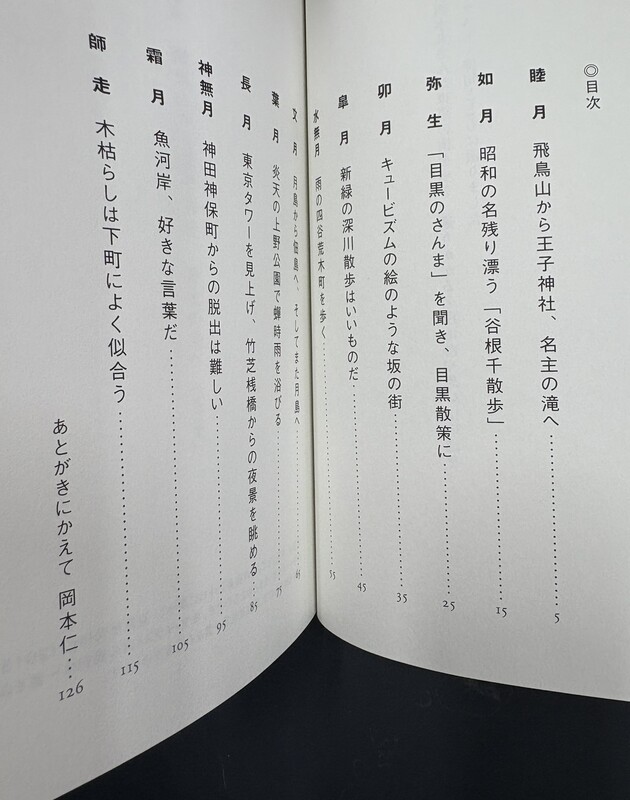 ◎目次
睦月 飛鳥山から王子神社、名主の滝へ…………5
如月 昭和の名残り漂う「谷根千散歩」…………15
弥生 「目黒のさんま」を聞き、目黒散策に…………25
卯月 キュービズムの絵のような坂の街…………35
皐月 新緑の深川散歩はいいものだ…………45
水無月 雨の四谷荒木町を歩く…………55
文月 月島から佃島へ、そしてまた月島へ…………65
葉月 炎天の上野公園で蝉時雨を浴びる…………75
長月 東京タワーを見上げ、竹芝桟橋からの夜景を眺める…………85
神無月 神田神保町からの脱出は難しい…………95
霜月 魚河岸、好きな言葉だ…………105
師走 木枯らしは下町によく似合う…………115
あとがきにかえて 岡本仁…126